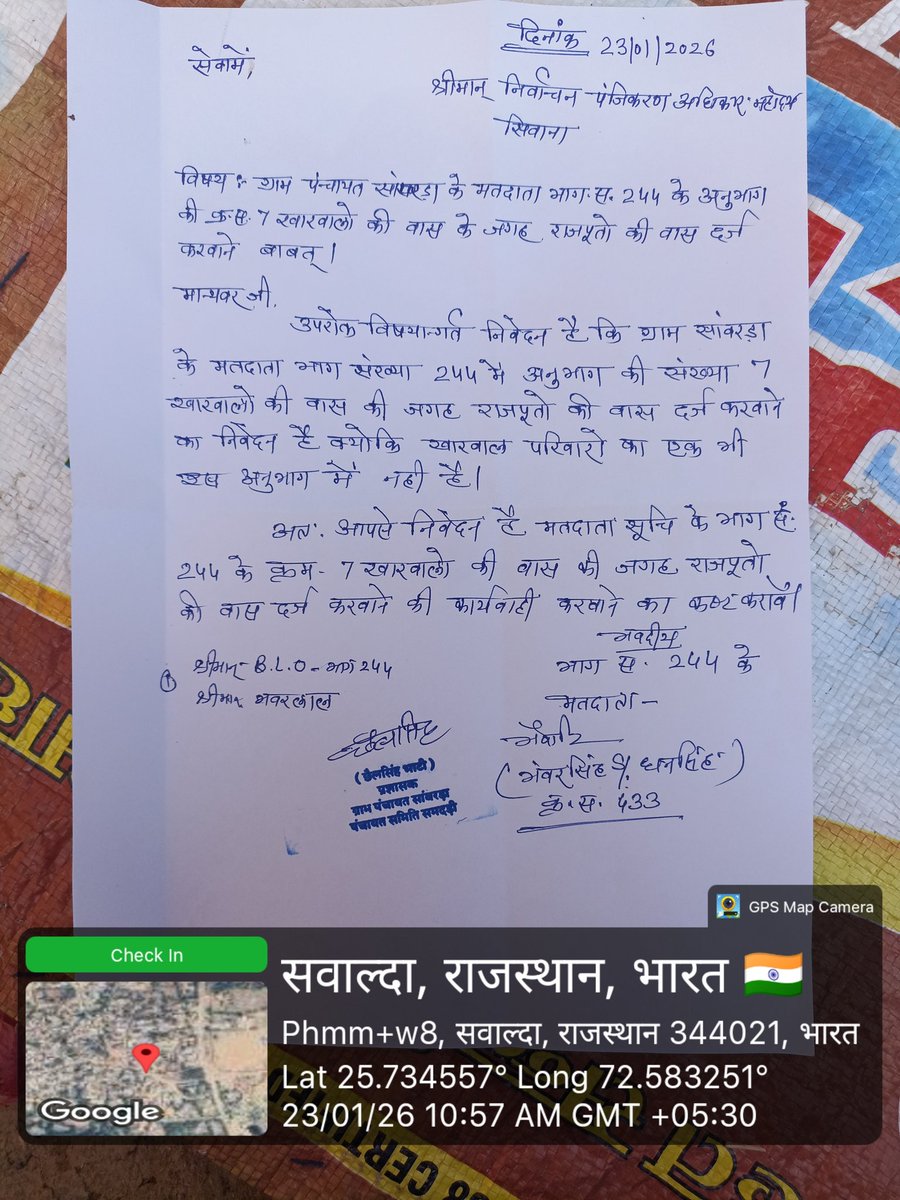 दिनांक 23/01/2026
सेवामें,
श्रीमान् निर्वाचन पंजिकरण अधिकारी महोदय
सिवाना
विषय :- ग्राम पंचायत सांवरड़ा के मतदाता भाग स. 244 के अनुभाग
की क्र.स. 7 खारवालो की वास के जगह राजपूतो की वास दर्ज
करवाने बाबत् ।
मान्यवर जी,
उपरोक्त विषयान्तर्गत निवेदन है कि ग्राम सांवरड़ा
के मतदाता भाग संख्या 244 में अनुभाग की संख्या 7
खारवालो की वास की जगह राजपूतो की वास दर्ज करवाने
का निवेदन है क्योकि खारवाल परिवारो का एक भी
अनुभाग में नही है।
अतः आपसे निवेदन है मतदाता सूचि के भाग सं.
244 के क्रम - 7 खारवालो की वास की जगह राजपूतो
की वास दर्ज करवाने की कार्यवाही करवाने का कष्ट करावें।
भवदीय
श्रीमान् - B.L.O - भाग 244
भाग स. 244 के
श्रीमान् भवरलाल
मतदाता -
(छैलसिंह भाटी)
प्रशासक
ग्राम पंचायत सांवरड़ा
पंचायत समिति समदड़ी
(भंवरसिंह S/. धनसिंह)
क्र.स. 433
GPS Map Camera
Check In
Google
सवाल्दा, राजस्थान, भारत 🇮🇳
Phmm+w8, सवाल्दा, राजस्थान 344021, भारत
Lat 25.734557° Long 72.583251°
23/01/26 10:57 AM GMT +05:30